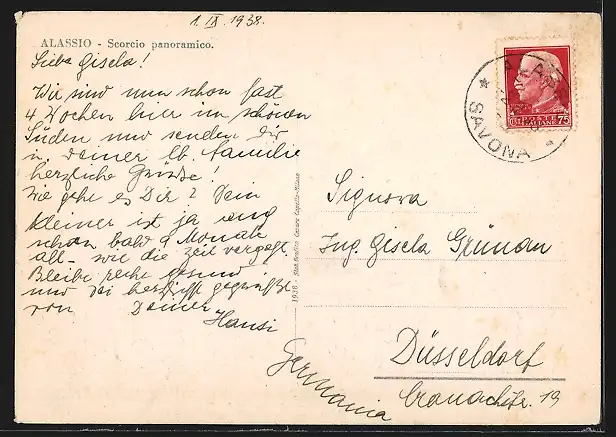 1. IX. 1938.
ALASSIO - Scorcio panoramico.
Liebe Gisela!
Wir sind nun schon fast
4 Wochen hier im schönen
Süden und senden Dir
u. Deiner lb. Familie
herzliche Grüsse!
Wie geht es Dir? Dein
kleiner ist ja auch
schon bald 9 Monate
alt - wie die Zeit vergeht.
Bleibe recht gesund
und sei herzlichst gegrüßt
von Deiner
Hansi
1938 - Stab. Grafico Cesare Capello - Milano
SAVONA
75
Signora
Ing. Gisela Grünau
Düsseldorf
Cranachstr. 19
Germania